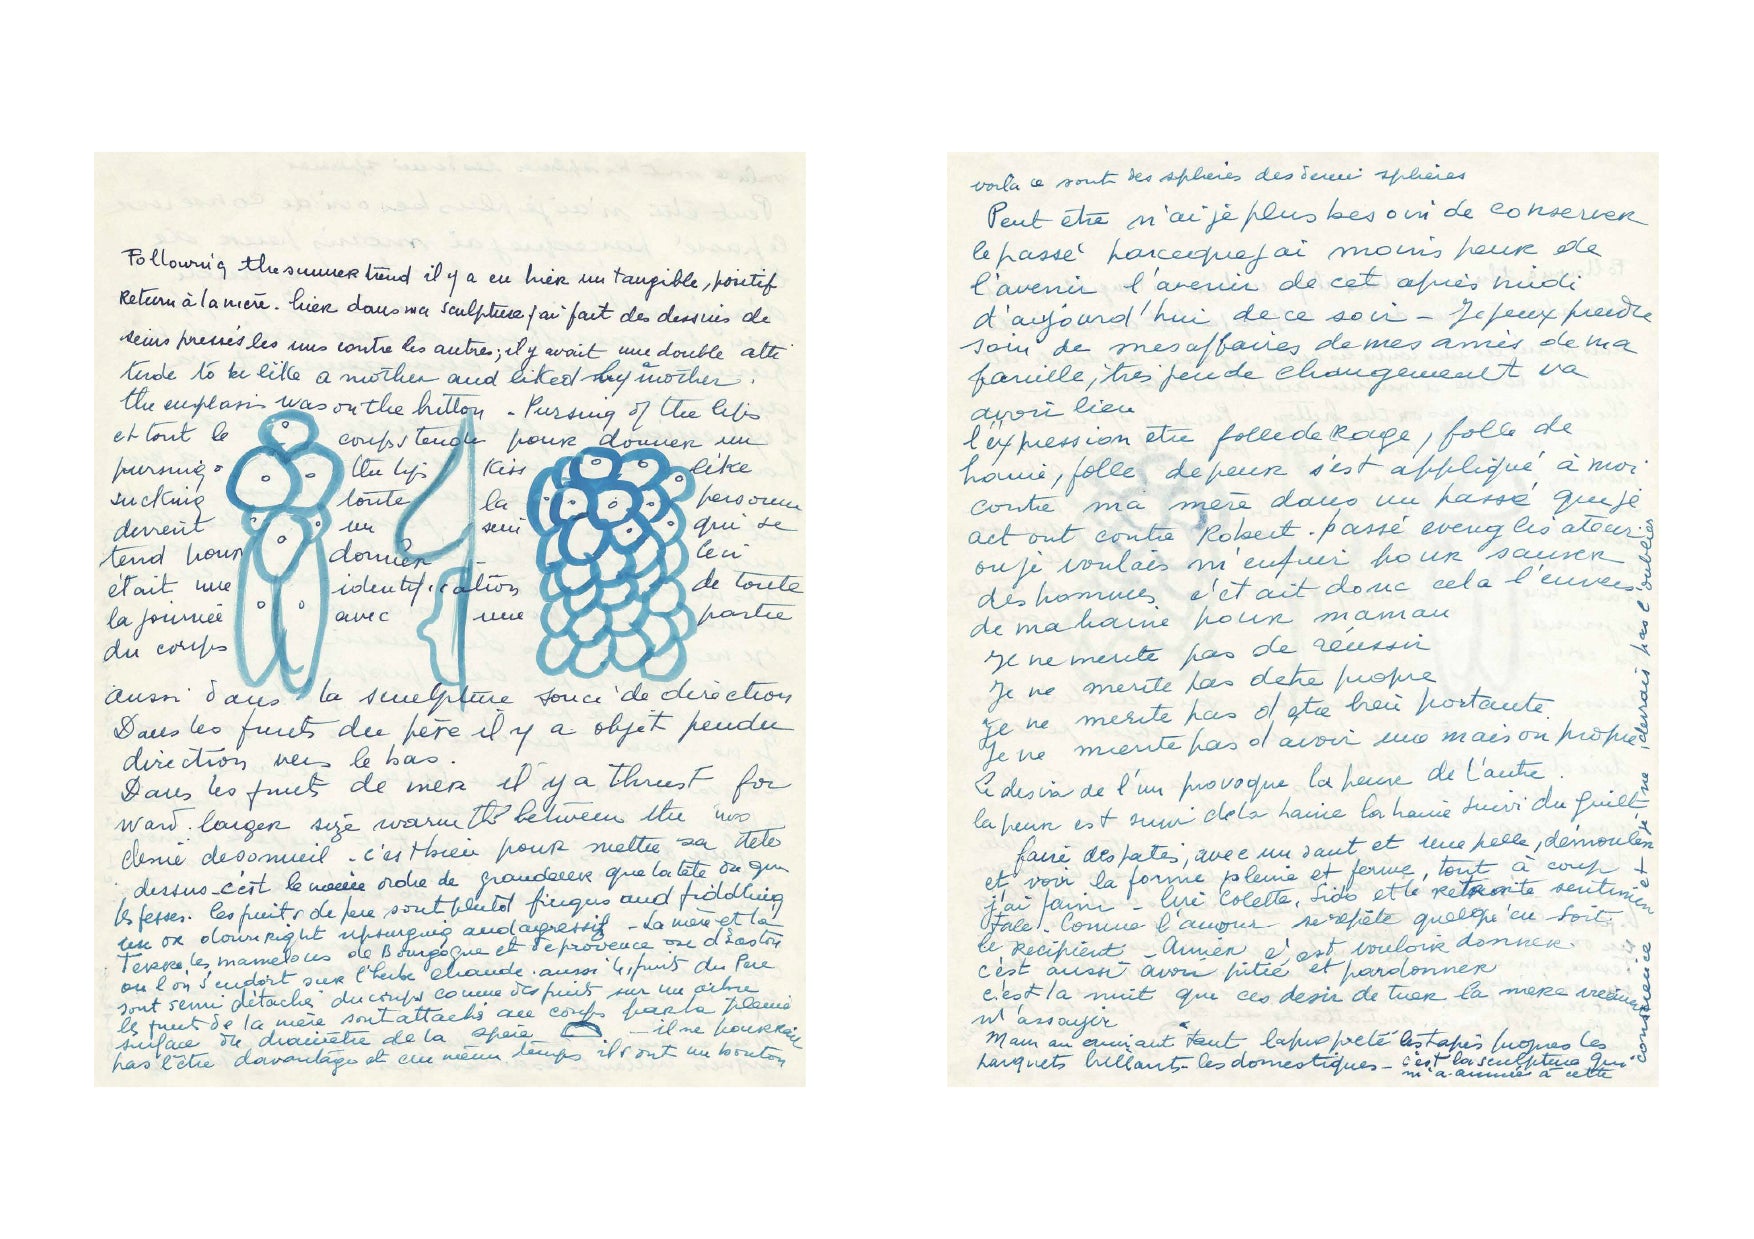 Following the summer trend il y a eu hier un tangible, positif
Return à la mère. hier dans ma sculpture j'ai fait des dessins de
seins pressés les uns contre les autres; il y avait une double atti
tude to be like a mother and liked by a mother.
the emphasis was on the button - Pursing of the lips
et tout le corps tendu pour donner un
pursing the lips kiss like
sucking toute la personne
devient un sein qui se
tend pour donner ceci
était une identification de toute
la journée avec une partie
du corps
aussi dans la sculpture souci de direction
Dans les fruits du père il y a objet pendu
direction vers le bas.
Dans les fruits de mer il y a thrust for
ward. larger size warmth between the two
demie de sommeil - c'est bien pour mettre sa tête
dessus - c'est le même ordre de grandeur que la tête ou que
les fesses. les fruits de père sont plutôt fingers and fiddling
un or downright upsurging and agressif - La mère et la
Terre les mamelons de Bourgogne et de provence or d'Easton
ou l'on s'endort sur l'herbe chaude. aussi les fruits du Père
sont semi détachés du corps comme des fruits sur un arbre
les fruits de la mère sont attachés au corps par la pleine
surface du diamètre de la sphère - il ne pourrait
pas l'être davantage et en même temps ils ont un bouton
voila ce sont des sphères des demi sphères
Peut être n'ai je plus besoin de conserver
le passé parceque j'ai moins peur de
l'avenir l'avenir de cet après midi
d'aujourd'hui de ce soir - Je peux prendre
soin de mes affaires de mes amis de ma
famille, très peu de changement va
avoir lieu
l'expression être folle de Rage, folle de
haine, folle de peur s'est appliqué à moi
contre ma mère dans un passé que je
act out contre Robert. passé
ou je voulais m'enfuir pour sauver
des hommes c'était donc cela l'envers
de ma haine pour maman
Je ne merite pas de réussir
Je ne merite pas detre propre
Je ne merite pas d etre bien portante
Je ne merite pas d avoir une maison propre
Le desir de l'un provoque la peur de l'autre.
la peur est suivi dela haine la haine suivi du guilt
faire des patés, avec un saut et une pelle, démouler
et voir la forme pleine et ferme, tout à coup
j'ai faim - lire Colette, Sido et le
Comme l'amour se repète quelqu'en soit
le Récipient - Aimer c'est vouloir donner
c'est aussi avoir pitié et pardonner
c'est la nuit que ces desir de tuer la mere
m'assayir
Maman aimait tant la propreté les tapis propres les
parquets brillants - les domestiques - c'est la sculpture qui
m'a amenée à cette
conscience et je ne devrais pas l'oublier